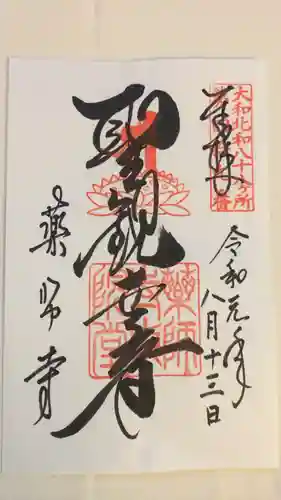 奉拝
大和北部八十八ヶ所
令和元年
八月十三日
聖観世音
薬師寺